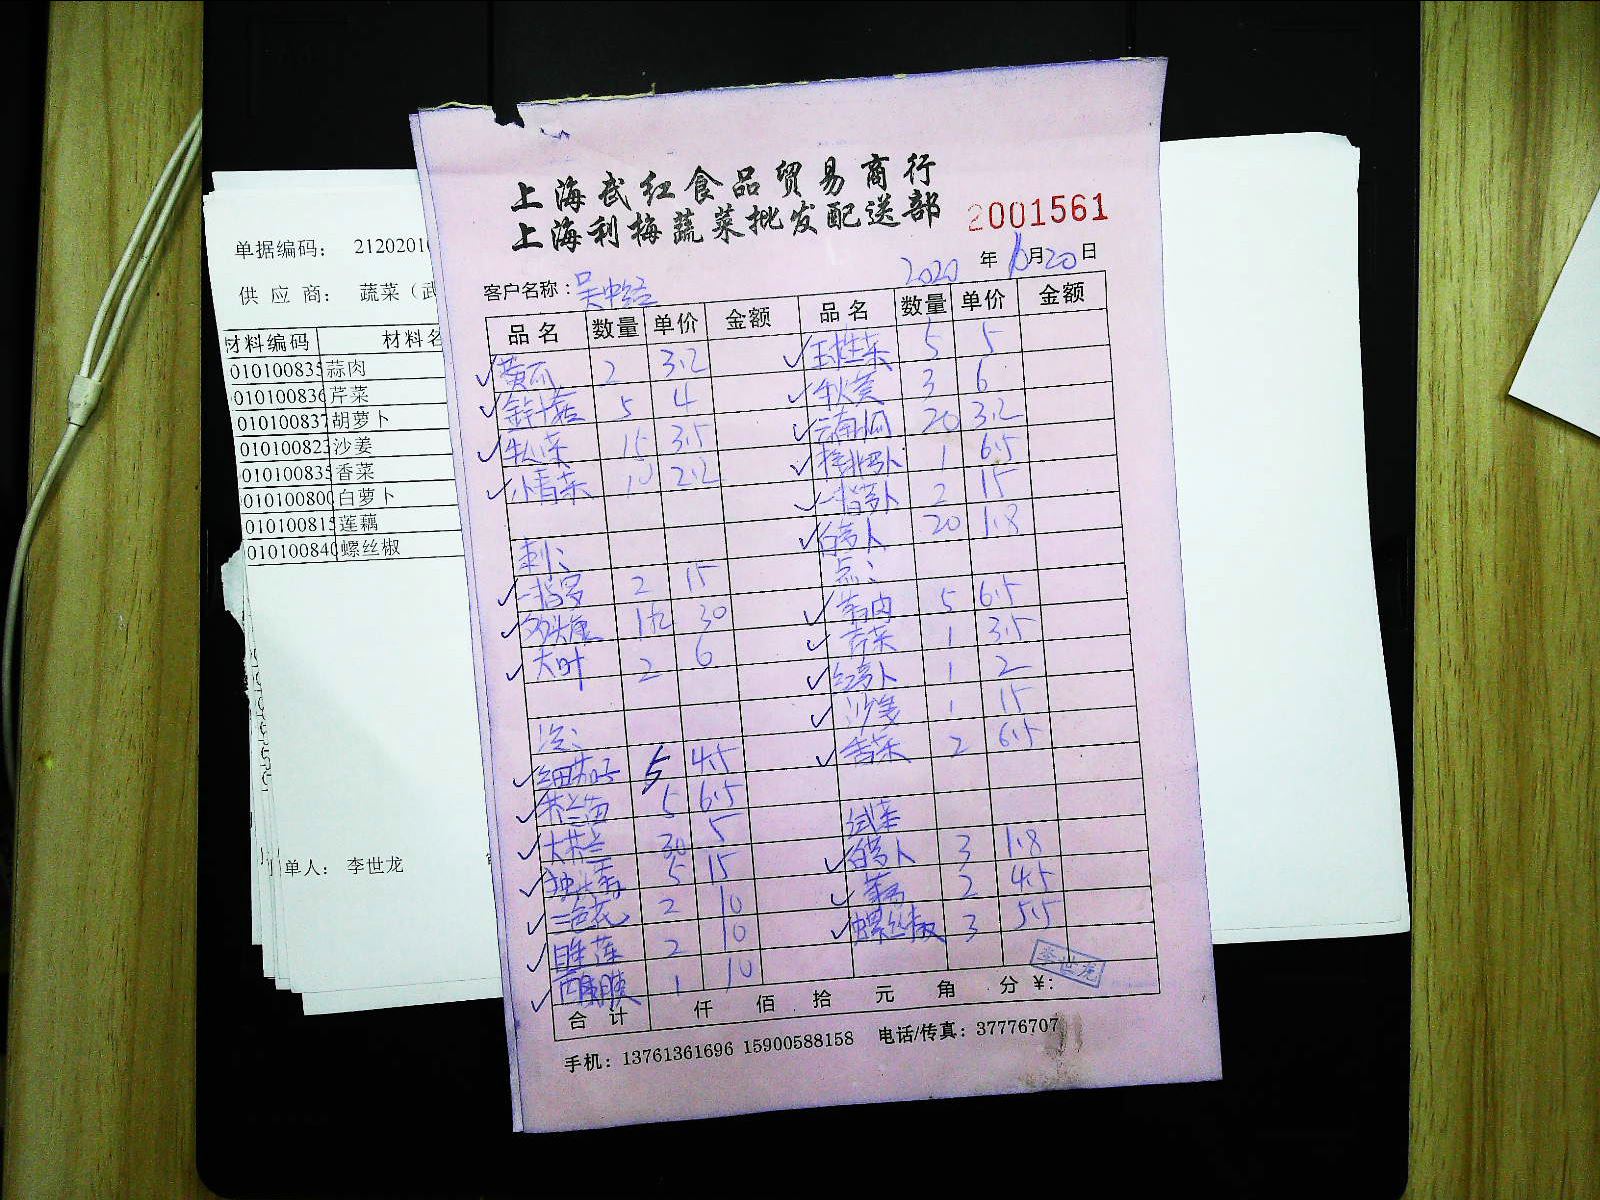 上海武红食品贸易商行
上海利梅蔬菜批发配送部
2001561
客户名称：吴中路 2020年10月20日
品名 数量 单价 金额 品名 数量 单价 金额
黄瓜 2 3.2
金针菇 5 4
生菜 15 3.5
小青菜 10 2.2
刺：
一指萝 2 15
2 30
大叶 2 6
冷：
细茄子 5 4.5
芥兰苗 5 6.5
大芥兰 30 5
独头蒜 5 15
三色花 2 10
睡莲 2 10
1 10
5 5
秋葵 3 6
云南小瓜 20 3.2
1 6.5
一指萝卜 2 15
白萝卜 20 1.8
点：
蒜肉 5 6.5
芹菜 1 3.5
红萝卜 1 2
沙姜 1 15
香菜 2 6.5
试菜
白萝卜 3 1.8
2 4.5
螺丝椒 3 5.5
李世龙
合计 仟 佰 拾 元 角 分 ¥:
手机：13761361696 15900588158 电话/传真：37776707
单据编码： 2120201
供应商： 蔬菜（武
材料编码 材料名
010100835 蒜肉
010100836 芹菜
010100837 胡萝卜
010100823 沙姜
010100835 香菜
010100800 白萝卜
010100815 莲藕
010100840 螺丝椒
单人： 李世龙